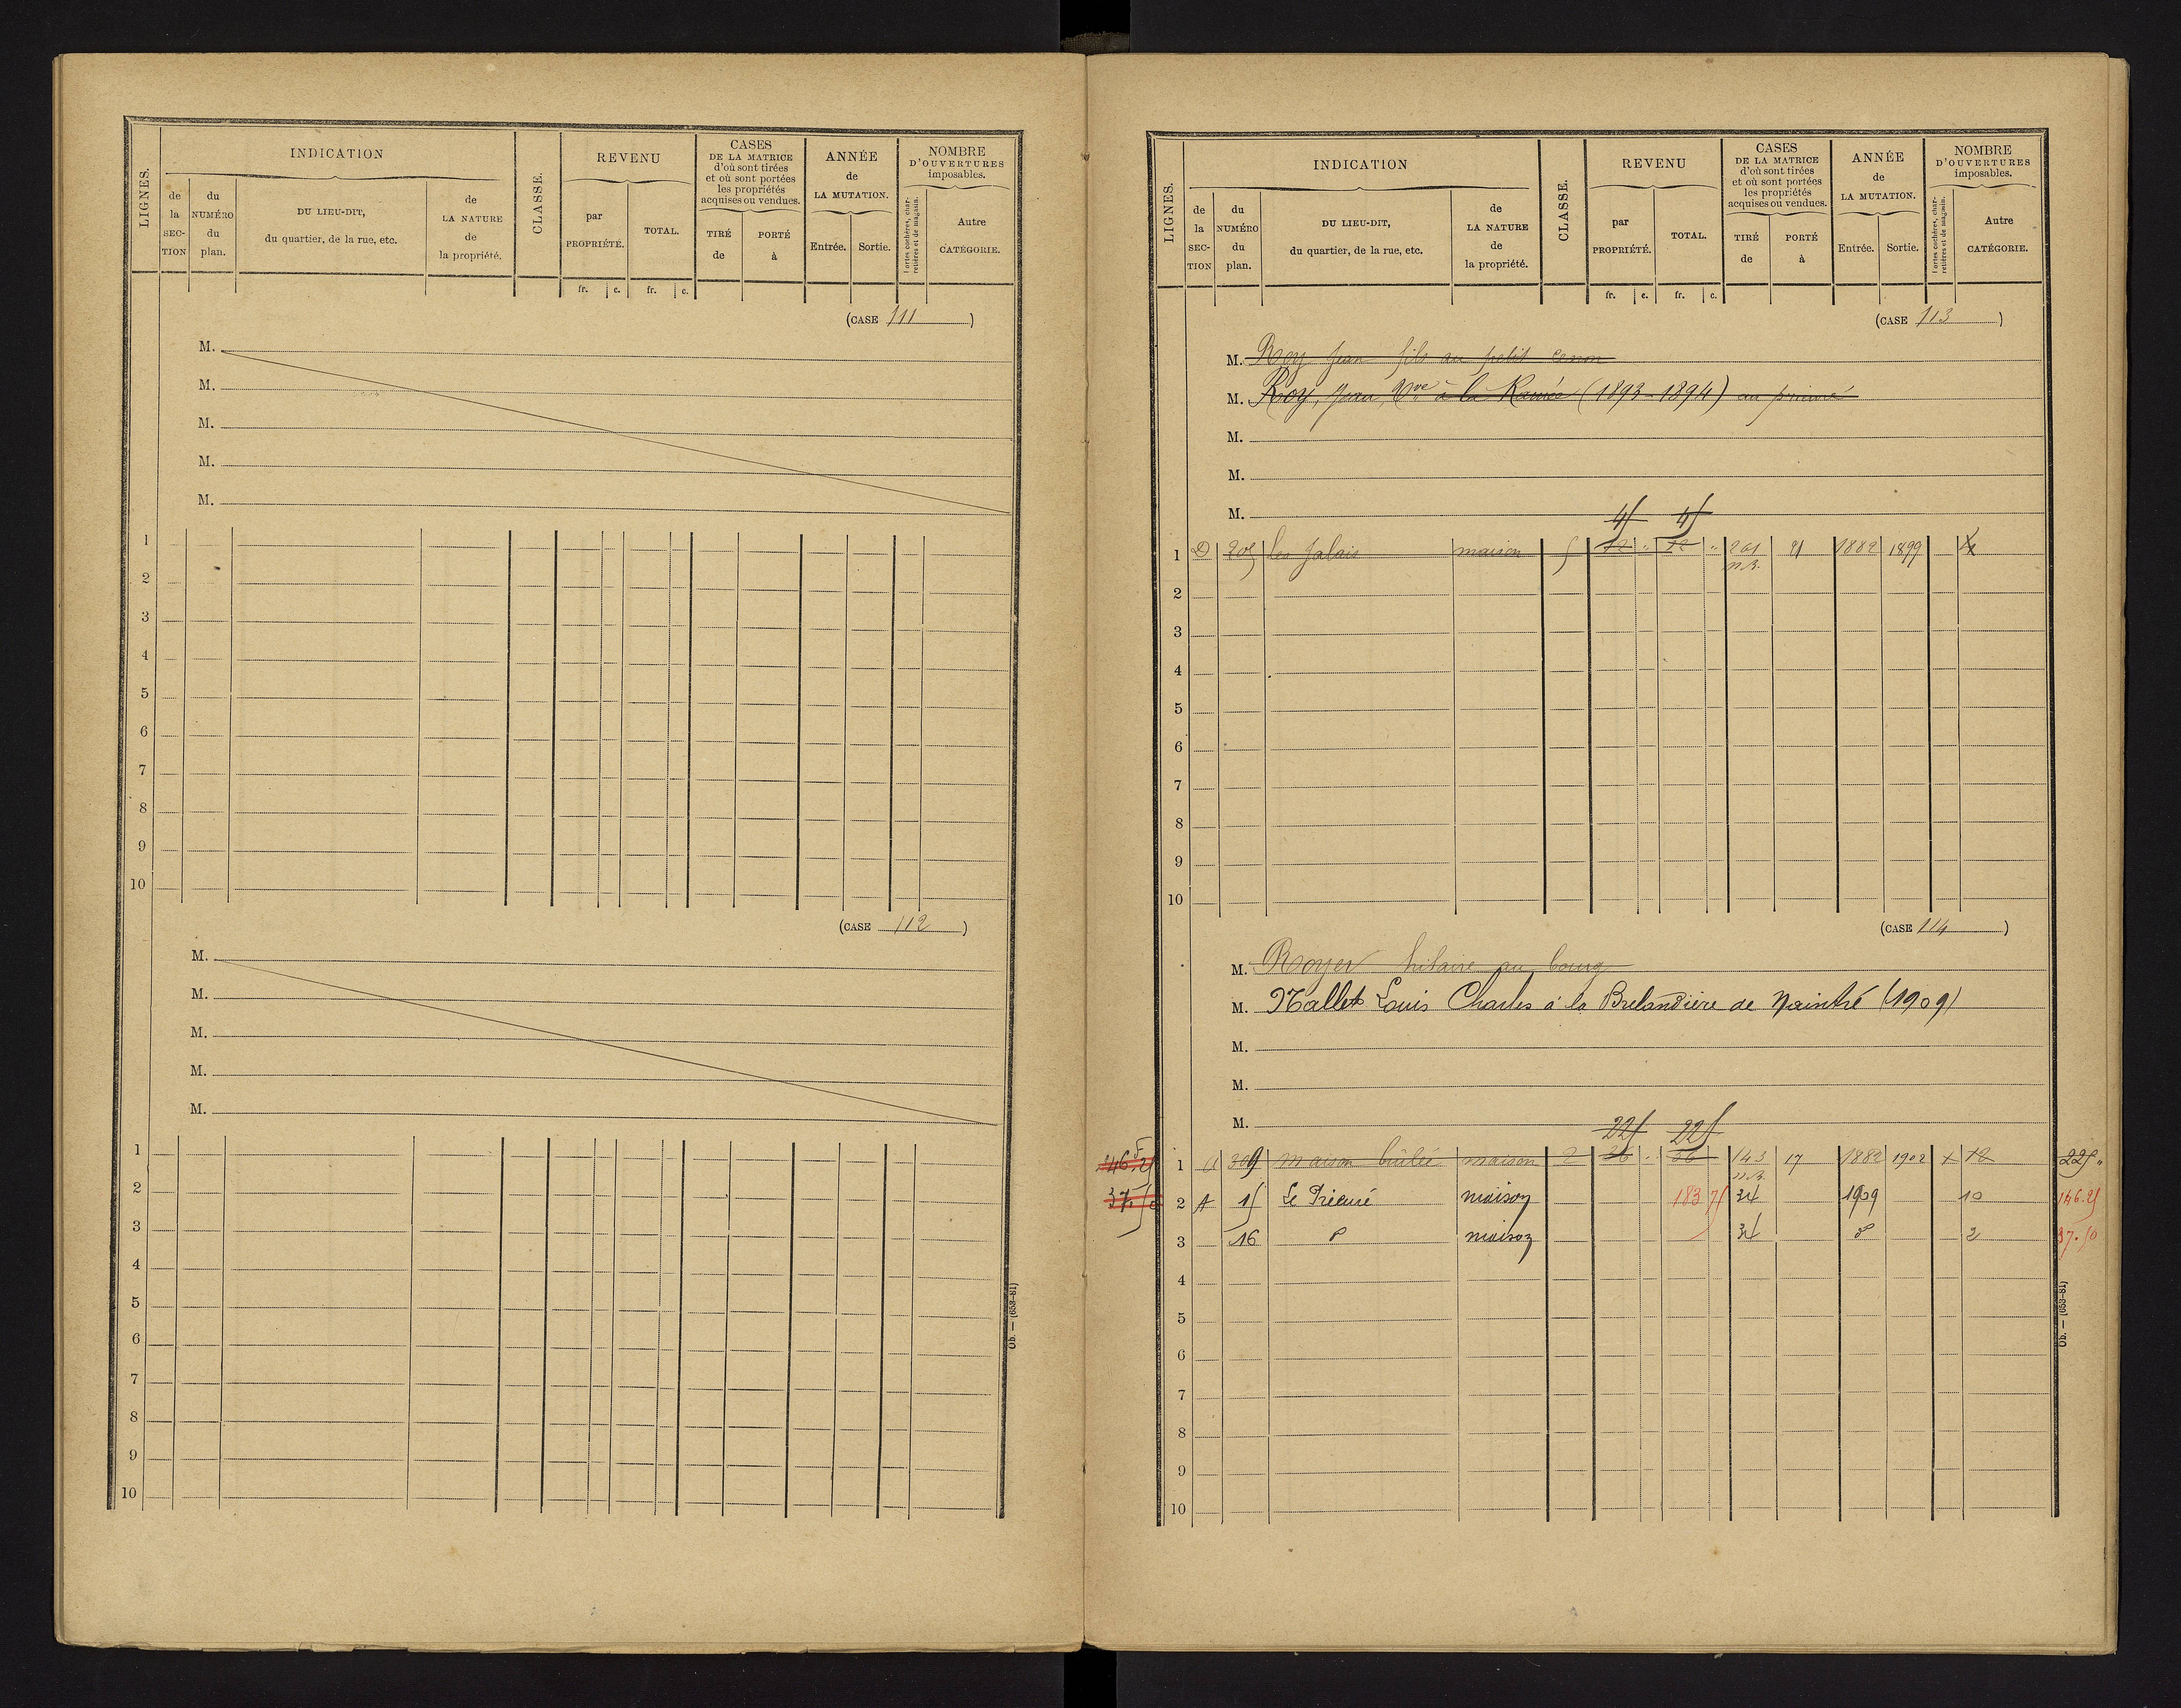 LIGNES.
INDICATION
de la SEC-TION
du NUMÉRO du plan.
DU LIEU-DIT, du quartier, de la rue, etc.
de LA NATURE de la propriété.
CLASSE.
REVENU
par PROPRIÉTÉ.
TOTAL.
fr. c. fr. c.
CASES DE LA MATRICE d'où sont tirées et où sont portées les propriétés acquises ou vendues.
TIRÉ de
PORTÉ à
ANNÉE de LA MUTATION.
Entrée. Sortie.
NOMBRE D'OUVERTURES imposables.
Portes cochères, charretières et de magasin.
Autre CATÉGORIE.
(CASE 111)
M.
M.
M.
M.
M.
1
2
3
4
5
6
7
8
9
10
(CASE 112)
M.
M.
M.
M.
M.
1
2
3
4
5
6
7
8
9
10
Ob. — (653-81)
LIGNES.
INDICATION
de la SEC-TION
du NUMÉRO du plan.
DU LIEU-DIT, du quartier, de la rue, etc.
de LA NATURE de la propriété.
CLASSE.
REVENU
par PROPRIÉTÉ.
TOTAL.
fr. c. fr. c.
CASES DE LA MATRICE d'où sont tirées et où sont portées les propriétés acquises ou vendues.
TIRÉ de
PORTÉ à
ANNÉE de LA MUTATION.
Entrée. Sortie.
NOMBRE D'OUVERTURES imposables.
Portes cochères, charretières et de magasin.
Autre CATÉGORIE.
(CASE 113)
M. Roy Jean fils au petit cenon
M. Roy, Jean, Vve à la Ramée (1893-1894) au prieuré
M.
M.
M.
45 45
1 D 205 les jalais maison 5 12 " 12 " 261 n.B. 21 1882 1899
2
3
4
5
6
7
8
9
10
(CASE 114)
M. Royer hilaire au bourg
M. Mallet Louis Charles à la Brelandière de Naintré (1909)
M.
M.
M.
225 225
146.25 1 A 309 maison brûlée maison 2 36 " 36 143 n.B. 17 1882 1902 12 225 "
37.50 2 A 15 Le Prieuré maison 183 75 34 1909 10 146.25
3 16 d° maison 34 d° 2 37.50
4
5
6
7
8
9
10
Ob. — (653-81)